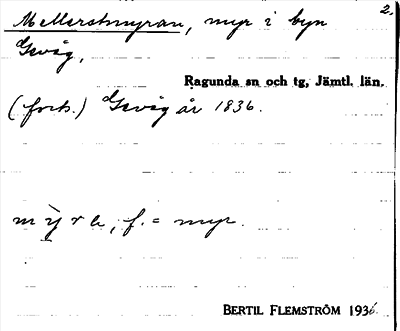 2.
Mellerstmyran, myr i byn
Gevåg,
Ragunda sn och tg, Jämtl. län.
(forts.) Gevåg år 1836.
f. = myr.
BERTIL FLEMSTRÖM 1936.